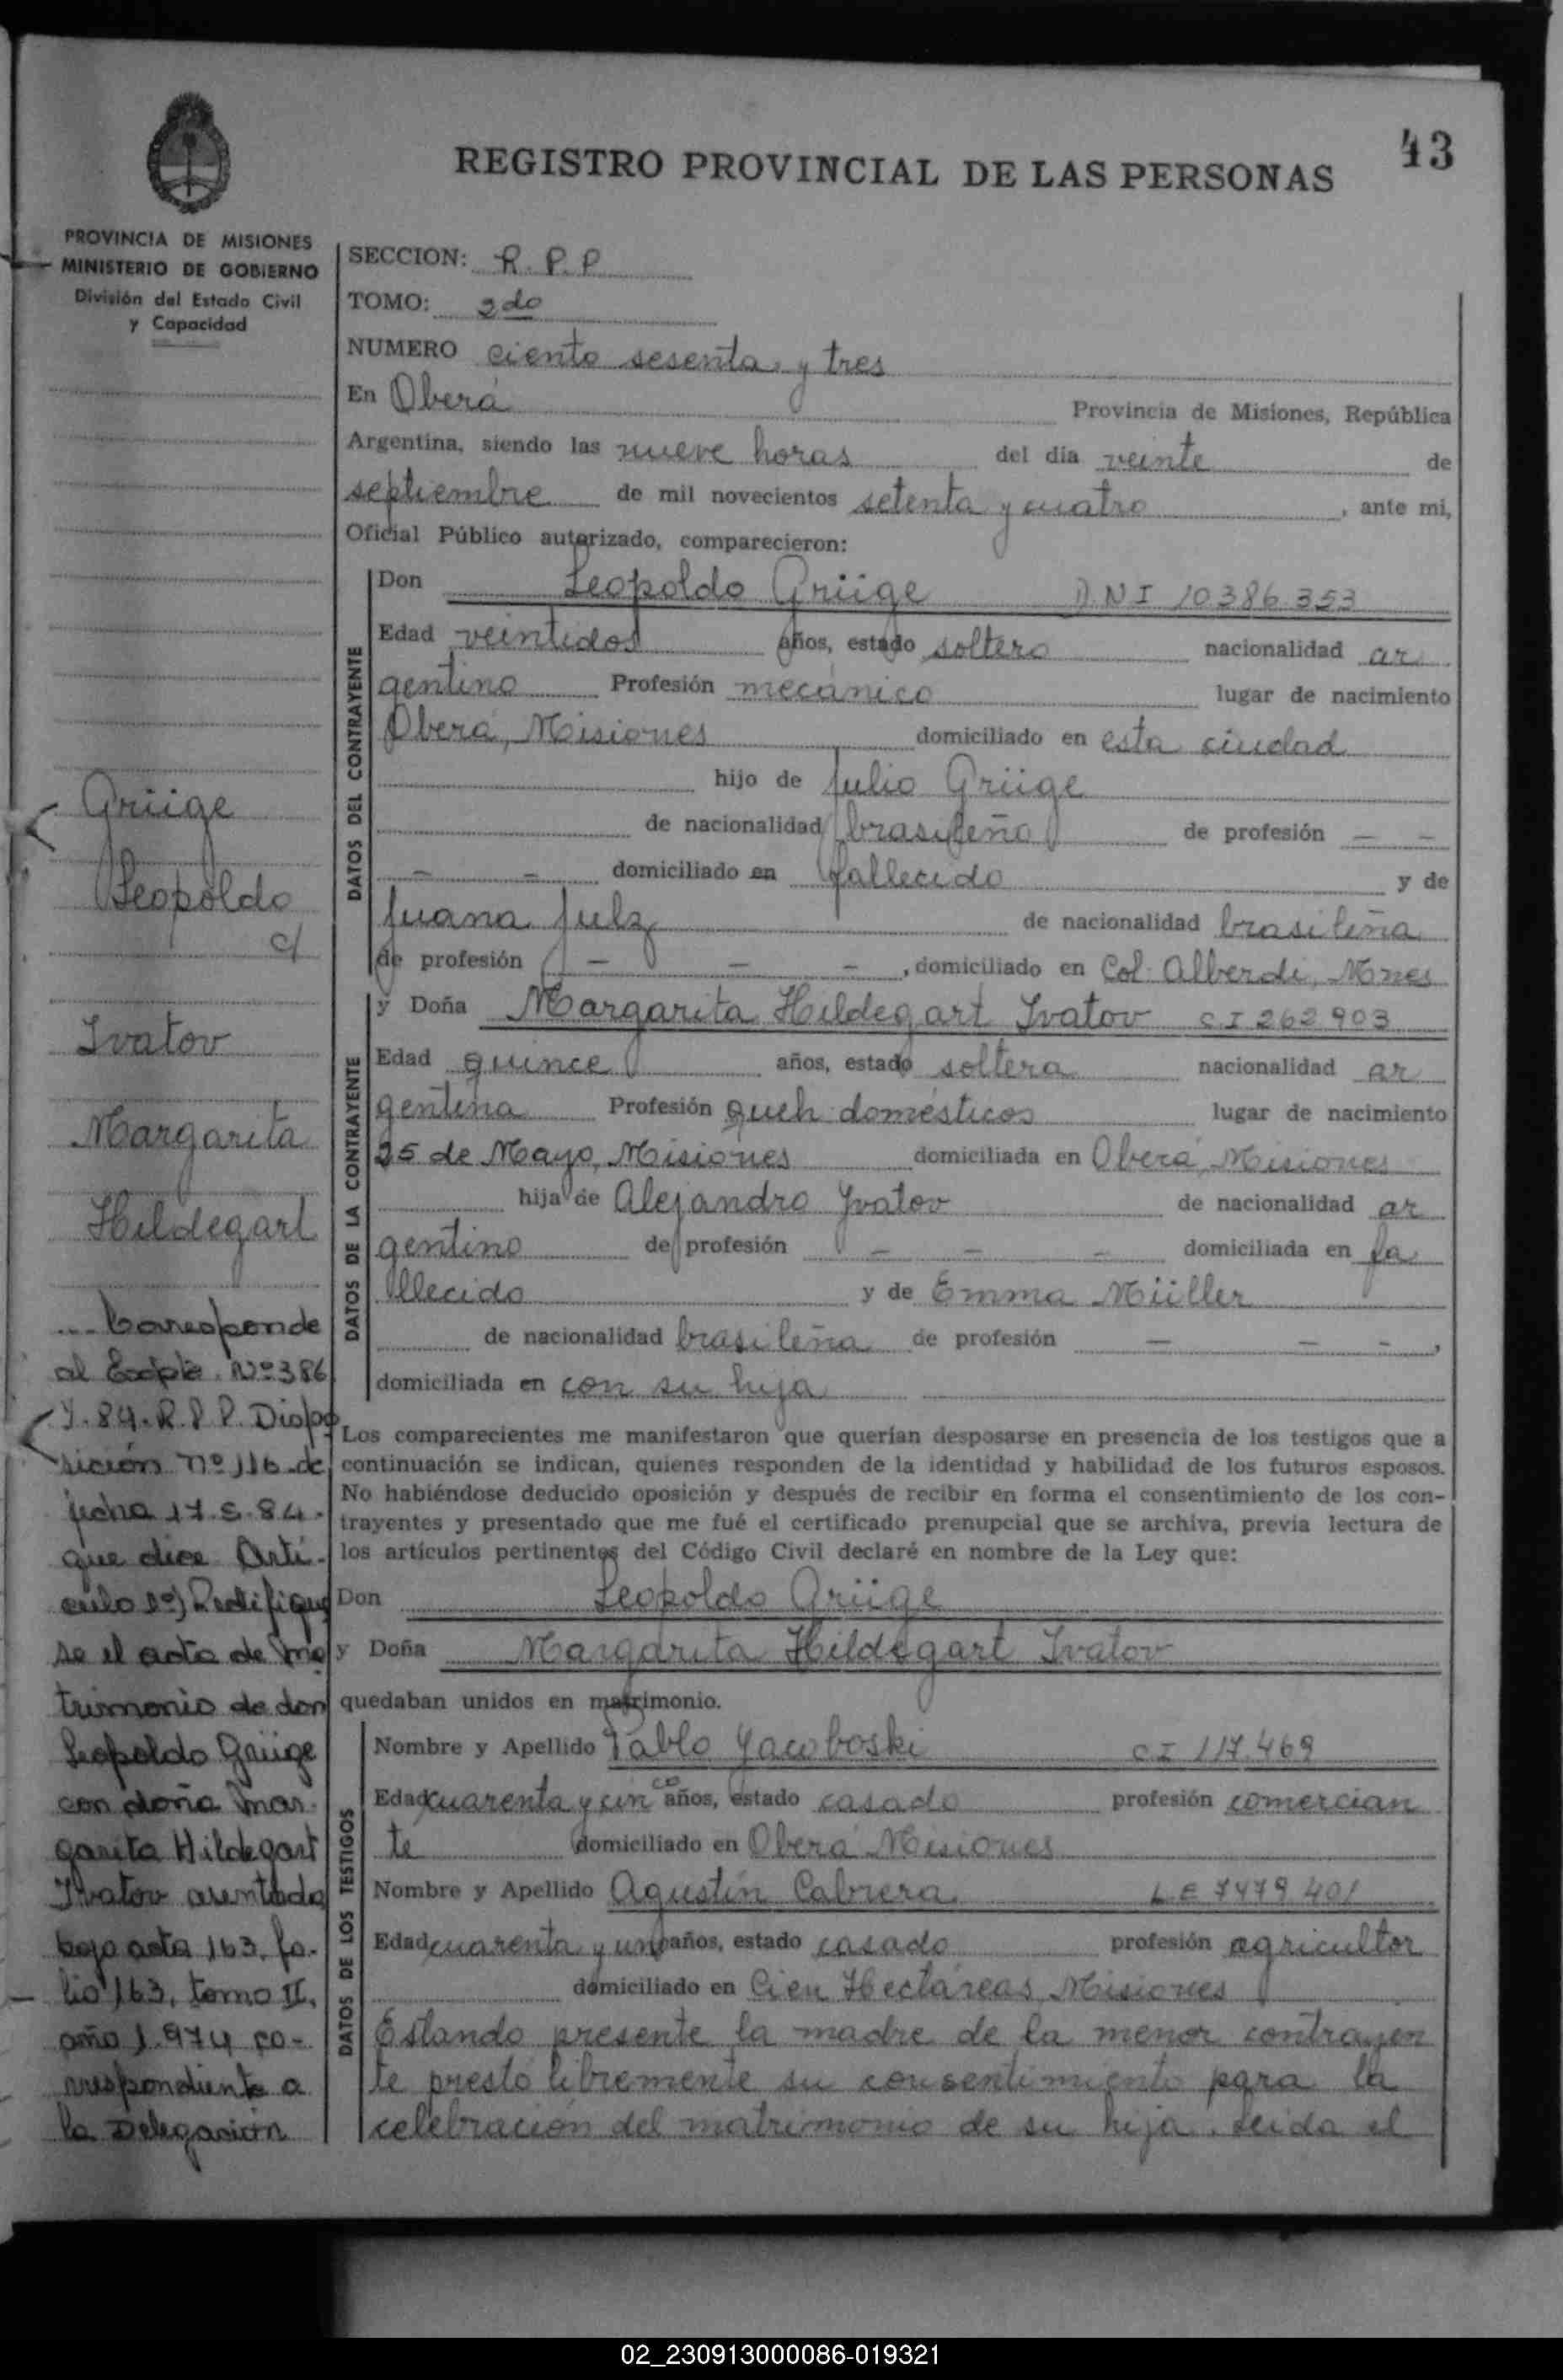 43
REGISTRO PROVINCIAL DE LAS PERSONAS
PROVINCIA DE MISIONES
MINISTERIO DE GOBIERNO
División del Estado Civil
y Capacidad
SECCION: R.P.P
TOMO: 2do
NUMERO ciento sesenta y tres
En Oberá Provincia de Misiones, República
Argentina, siendo las nueve horas del día veinte de
septiembre de mil novecientos setenta y cuatro, ante mi,
Oficial Público autorizado, comparecieron:
DATOS DEL CONTRAYENTE
Don Leopoldo Grüige D.N.I 10386.353
Edad veintidos años, estado soltero nacionalidad ar
gentino Profesión mecánico lugar de nacimiento
Oberá, Misiones domiciliado en esta ciudad
hijo de Julio Grüige
de nacionalidad brasileño de profesión — —
— — domiciliado en fallecido y de
Juana Julz de nacionalidad brasileña
de profesión — — —, domiciliado en Col. Alberdi, Mnes
DATOS DE LA CONTRAYENTE
y Doña Margarita Hildegart Ivatov CI 262.903
Edad quince años, estado soltera nacionalidad ar
gentina Profesión queh. domésticos lugar de nacimiento
25 de Mayo, Misiones domiciliada en Oberá, Misiones
hija de Alejandro Ivatov de nacionalidad ar
gentino de profesión — — — domiciliada en fa
llecido y de Emma Müller
de nacionalidad brasileña de profesión — — —,
domiciliada en con su hija
Los comparecientes me manifestaron que querían desposarse en presencia de los testigos que a
continuación se indican, quienes responden de la identidad y habilidad de los futuros esposos.
No habiéndose deducido oposición y después de recibir en forma el consentimiento de los con-
trayentes y presentado que me fué el certificado prenupcial que se archiva, previa lectura de
los artículos pertinentes del Código Civil declaré en nombre de la Ley que:
Don Leopoldo Grüige
y Doña Margarita Hildegart Ivatov
quedaban unidos en matrimonio.
DATOS DE LOS TESTIGOS
Nombre y Apellido Pablo Yacoboski CI 117.469
Edad cuarenta y cinco años, estado casado profesión comercian
te domiciliado en Oberá Misiones
Nombre y Apellido Agustín Cabrera L E 7479.401
Edad cuarenta y uno años, estado casado profesión agricultor
domiciliado en Cien Hectáreas, Misiones
Estando presente la madre de la menor contrayen
te prestó libremente su consentimiento para la
celebración del matrimonio de su hija. Leida el
Grüige
Leopoldo
c/
Ivatov
Margarita
Hildegart
Corresponde
al Expte. Nº 386
84. R.P.P. Dispo
sición nº 116 de
fecha 17.5.84.
que dice Artí-
culo 1º) Rectifique
se el acta de ma
trimonio de don
Leopoldo Grüige
con doña Mar-
garita Hildegart
Ivatov asentada
bajo acta 163, fo-
lio 163, tomo II,
año 1.974 co-
rrespondiente a
la Delegación
02_230913000086-019321